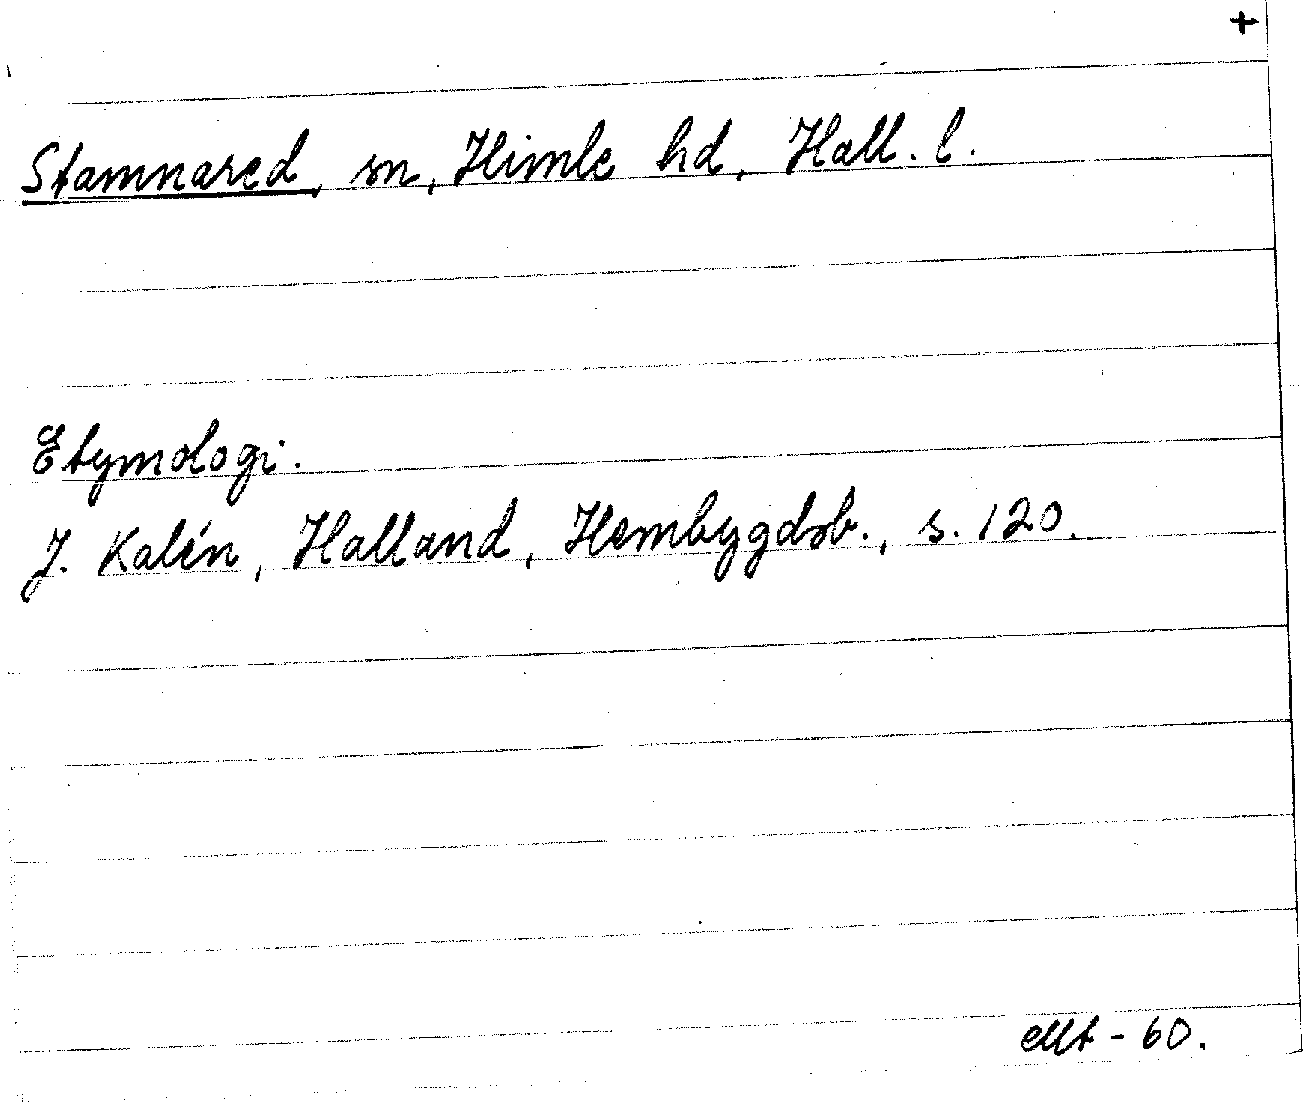 +
Stamnared, sn, Himle hd, Hall. l.
Etymologi.
J. Kalén, Halland, Hembygdsb., s. 120.
Mt - 60.